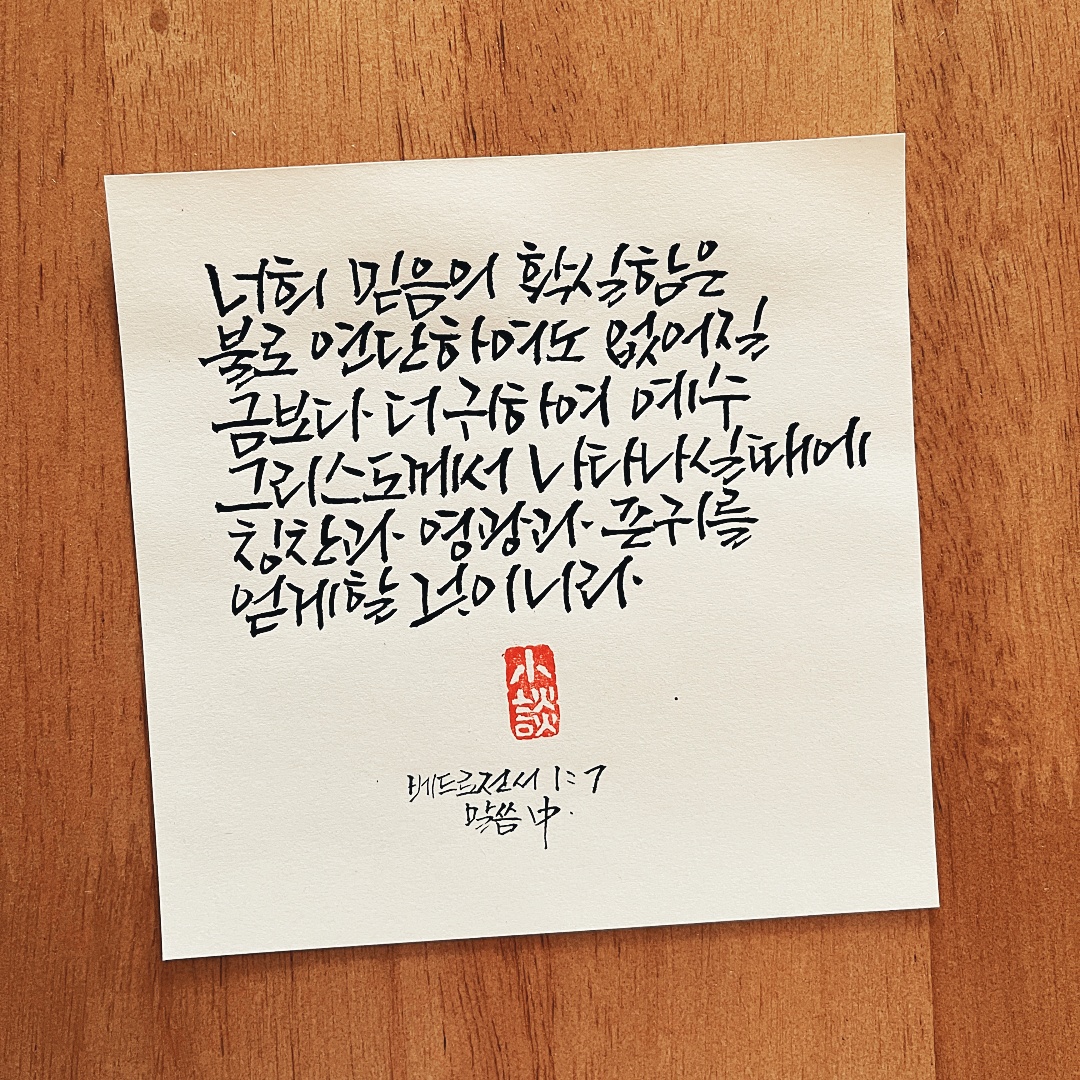 너희 믿음의 확실함은
불로 연단하여도 없어질
금보다 더 귀하여 예수
그리스도께서 나타나실때에
칭찬과 영광과 존귀를
얻게할 것이니라.
小談
베드로전서 1:7
말씀 中.